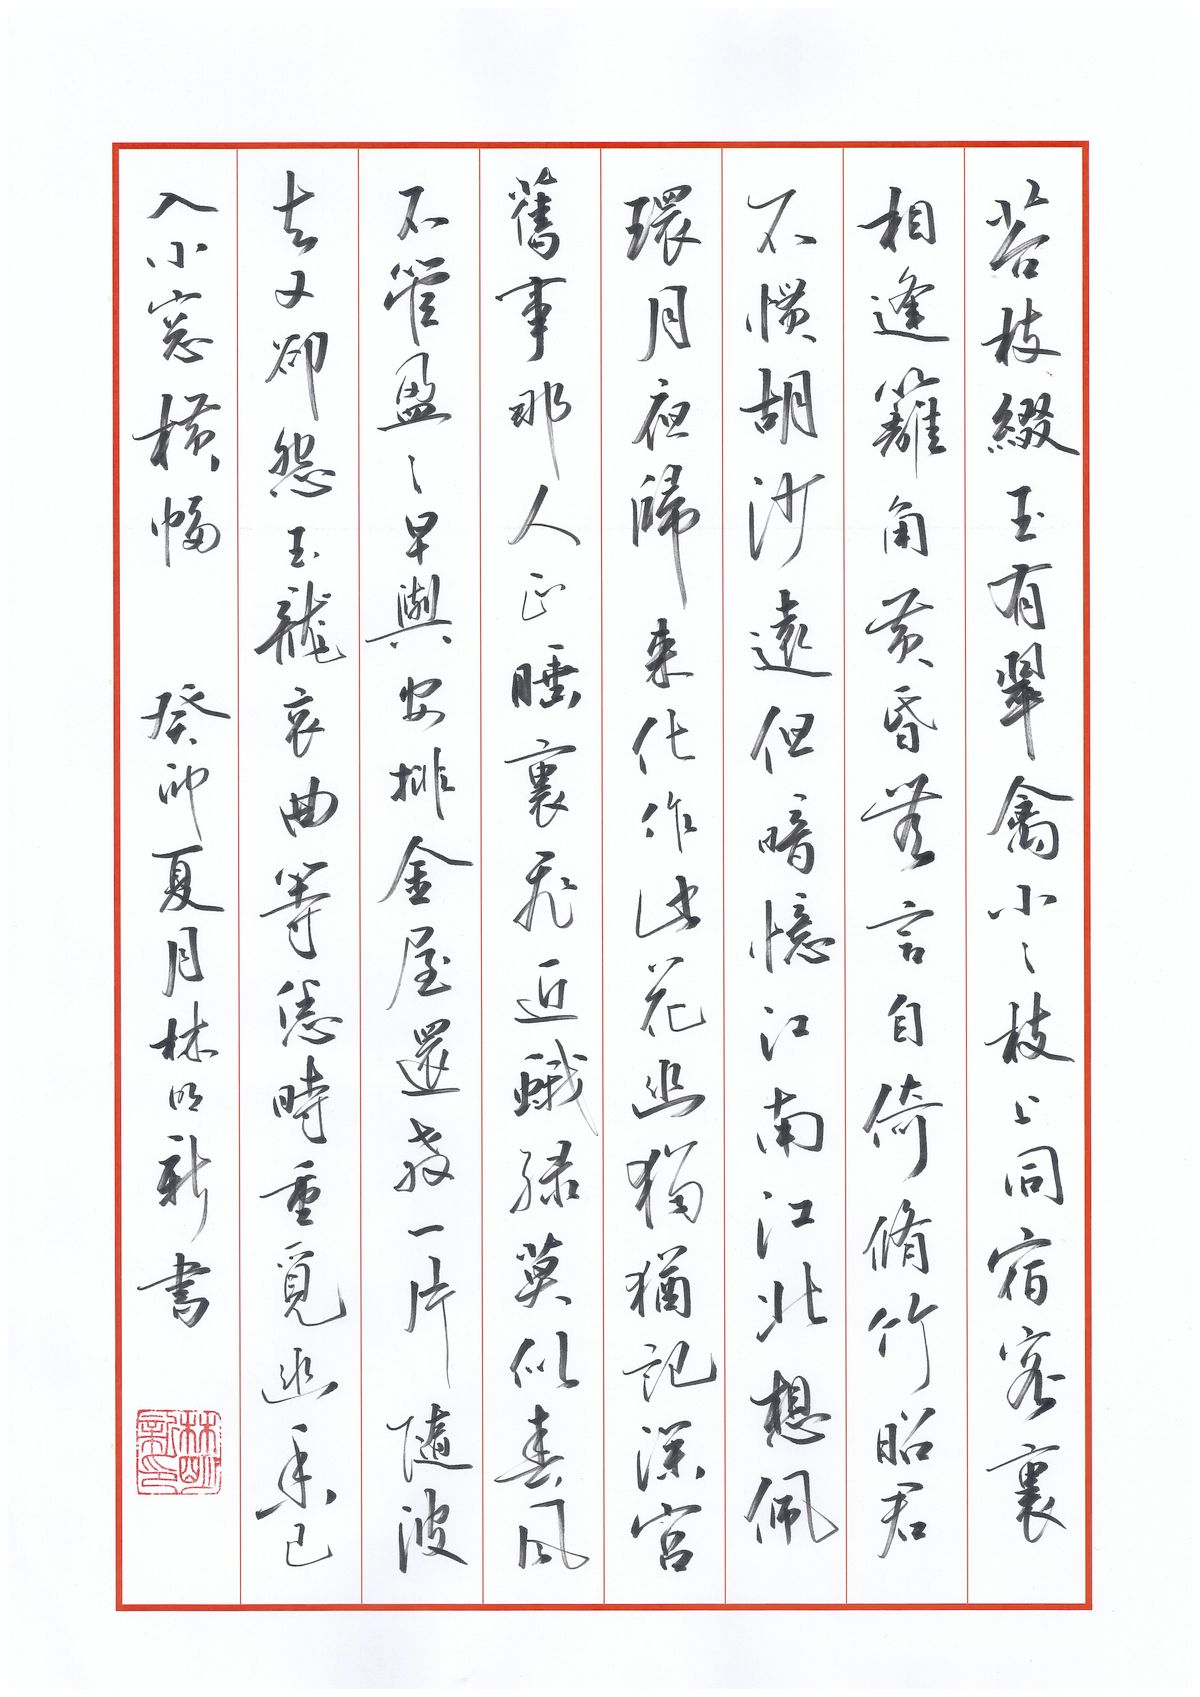 苔枝綴玉有翠禽小〻枝上同宿客裏
相逢籬角黃昏無言自倚脩竹昭君
不慣胡沙遠但暗憶江南江北想佩
環月夜歸來化作此花幽獨猶記深宮
舊事那人正睡裏飛近蛾綠莫似春風
不管盈〻早與安排金屋還教一片隨波
去又卻怨玉龍哀曲等恁時重覓幽香已
入小窓橫幅 癸卯夏月林明新書
林明新印